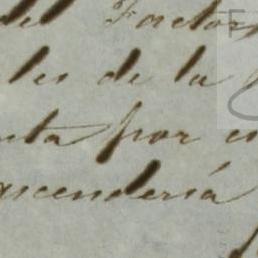 del Factor
les de la
nta por
ascendería